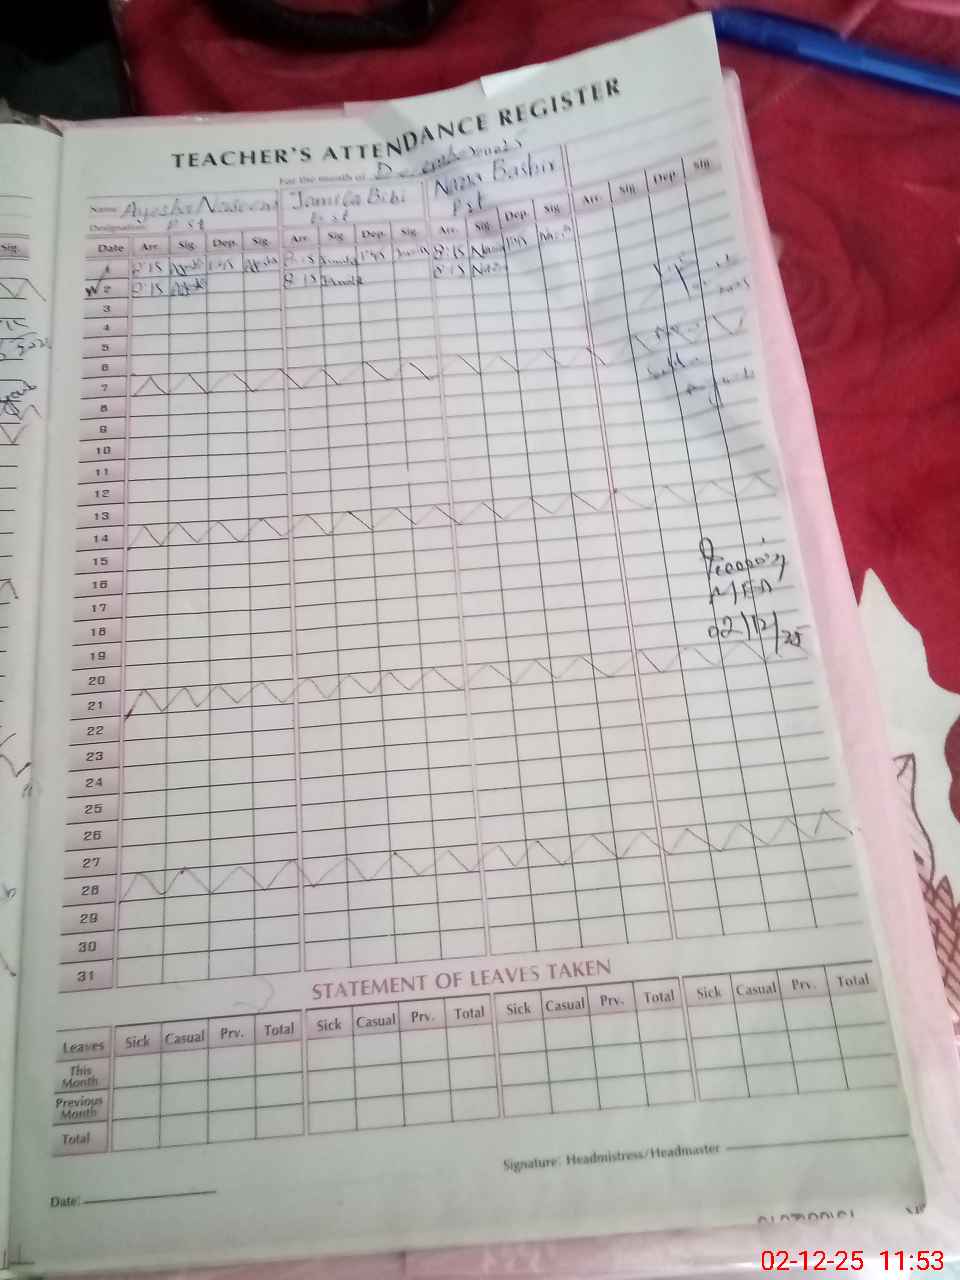 TEACHER'S ATTENDANCE REGISTER
For the month of December 2025
Name Ayesha Naseem Jamila Bibi Nazia Bashir
Designation: Pst Pst Pst
Date Arr. Sig. Dep. Sig. Arr. Sig. Dep. Sig. Arr. Sig. Dep. Sig. Arr. Sig. Dep. Sig.
1 8:15 1:45 8:15 Jamila 1:45 8:15 1:45
2 8:15 8:15 Jamila 8:15
3
4
5
6
7
8
9
10
11
12
13
14
15
16
17
18
19
20
21
22
23
24
25
26
27
28
29
30
31
MEA
02/12/25
STATEMENT OF LEAVES TAKEN
Leaves Sick Casual Prv. Total Sick Casual Prv. Total Sick Casual Prv. Total Sick Casual Prv. Total
This Month
Previous Month
Total
Signature: Headmistress/Headmaster
Date:
02-12-25 11:53